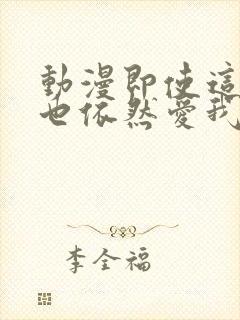 動漫即使這
也依然愛我
李全福